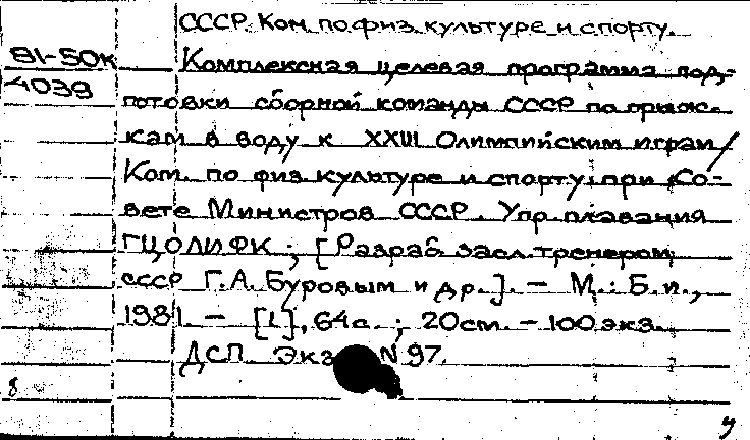 СССР. Ком. по физ. культуре и спорту.
81-50к
4039
Комплексная целевая программа под-
готовки сборной команды СССР по прыж-
кам в воду к XXIII Олимпийским играм /
Ком. по физ. культуре и спорту при Со-
вете Министров СССР. Упр. плавания
ГЦОЛИФК ; [Разраб. засл. тренером
СССР Г.А. Буровым и др.]. – М. : Б.и.,
1981. – [1], 64 с. ; 20 см. – 100 экз.
ДСП. Экз. N 97.
8